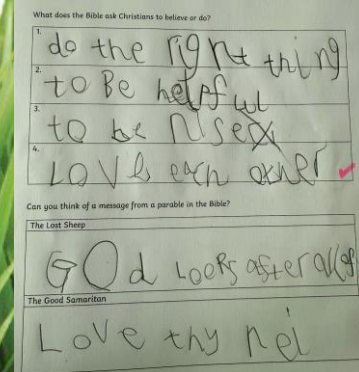 What does the Bible ask Christians to believe or do?
1. do the right thing
2. to Be helpful
3. to be nise
4. LOVE each other
Can you think of a message from a parable in the Bible?
The Lost Sheep
GOd Looks after all of
The Good Samaritan
Love thy nei